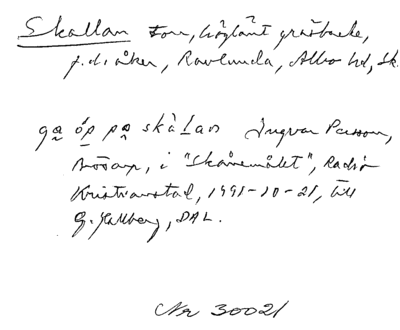 Skallan Torn, höglänt gräsbacke,
f.d. åker, Ravlunda, Albo hd, Sk.
ga óp pa skàlan Ingvar Persson,
i "Skånemålet", Radio
Kristianstad, 1991-10-21, till
G. Hallberg, DAL.
Nr 30021